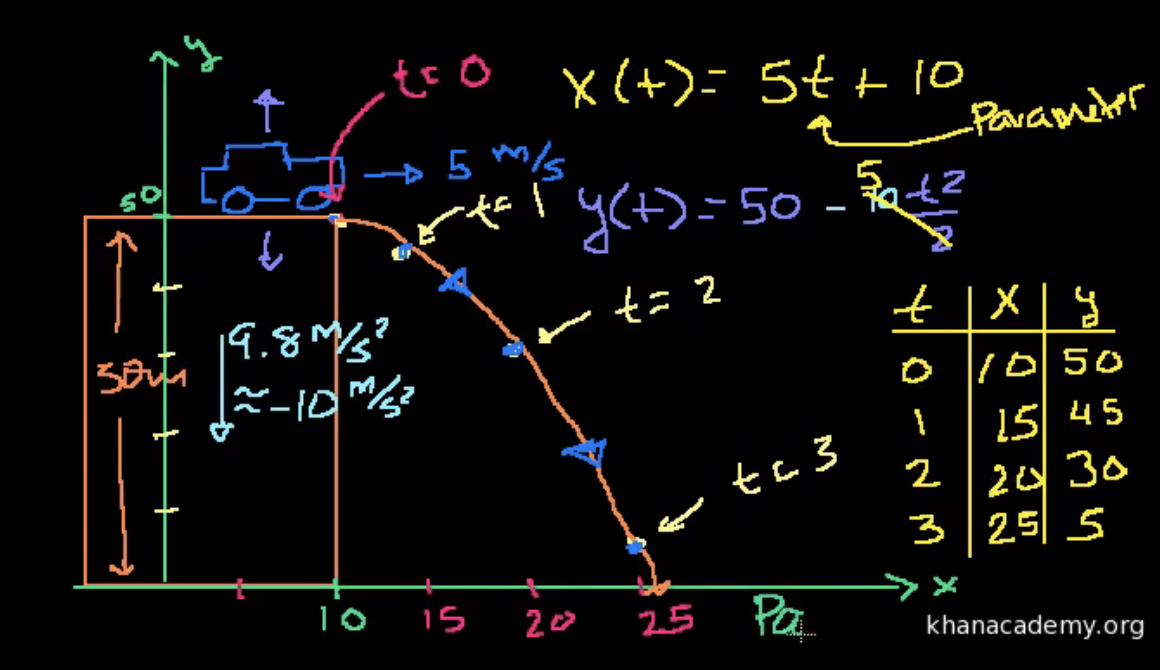 y
t = 0
x(t) = 5t + 10
Parameter
5 m/s
50
t = 1
y(t) = 50 - 5 10 t2/2
t = 2
9.8 m/s²
≈ -10 m/s²
50m
t = 3
t x y
0 10 50
1 15 45
2 20 30
3 25 5
10 15 20 25 x
Pa
khanacademy.org